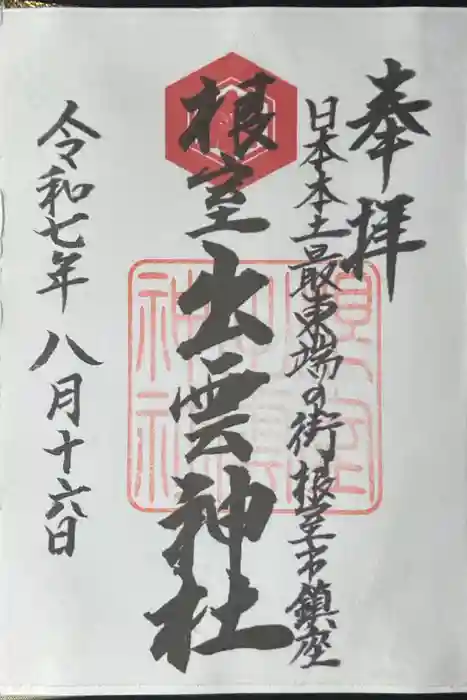 奉拝
日本本土最東端の街根室市鎮座
根室出雲神社
令和七年八月十六日